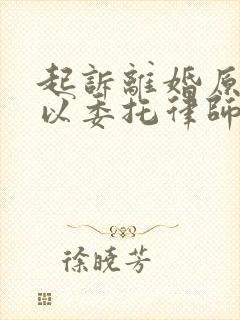 起訴離婚原
以委托律師
徐曉芳